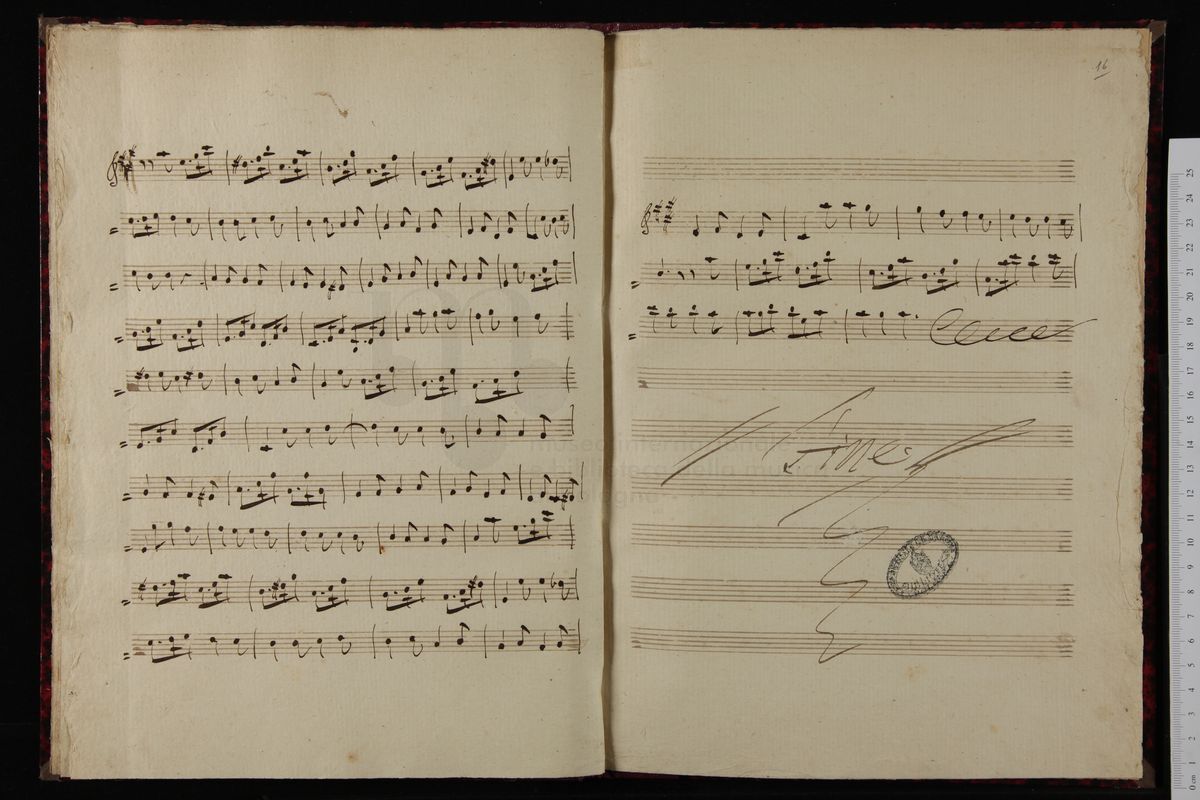 16
Fine
museo internazionale
e biblioteca della musica
di bologna
25
24
23
22
21
20
19
18
17
16
15
14
13
12
11
10
9
8
7
6
5
4
3
2
1
0 cm